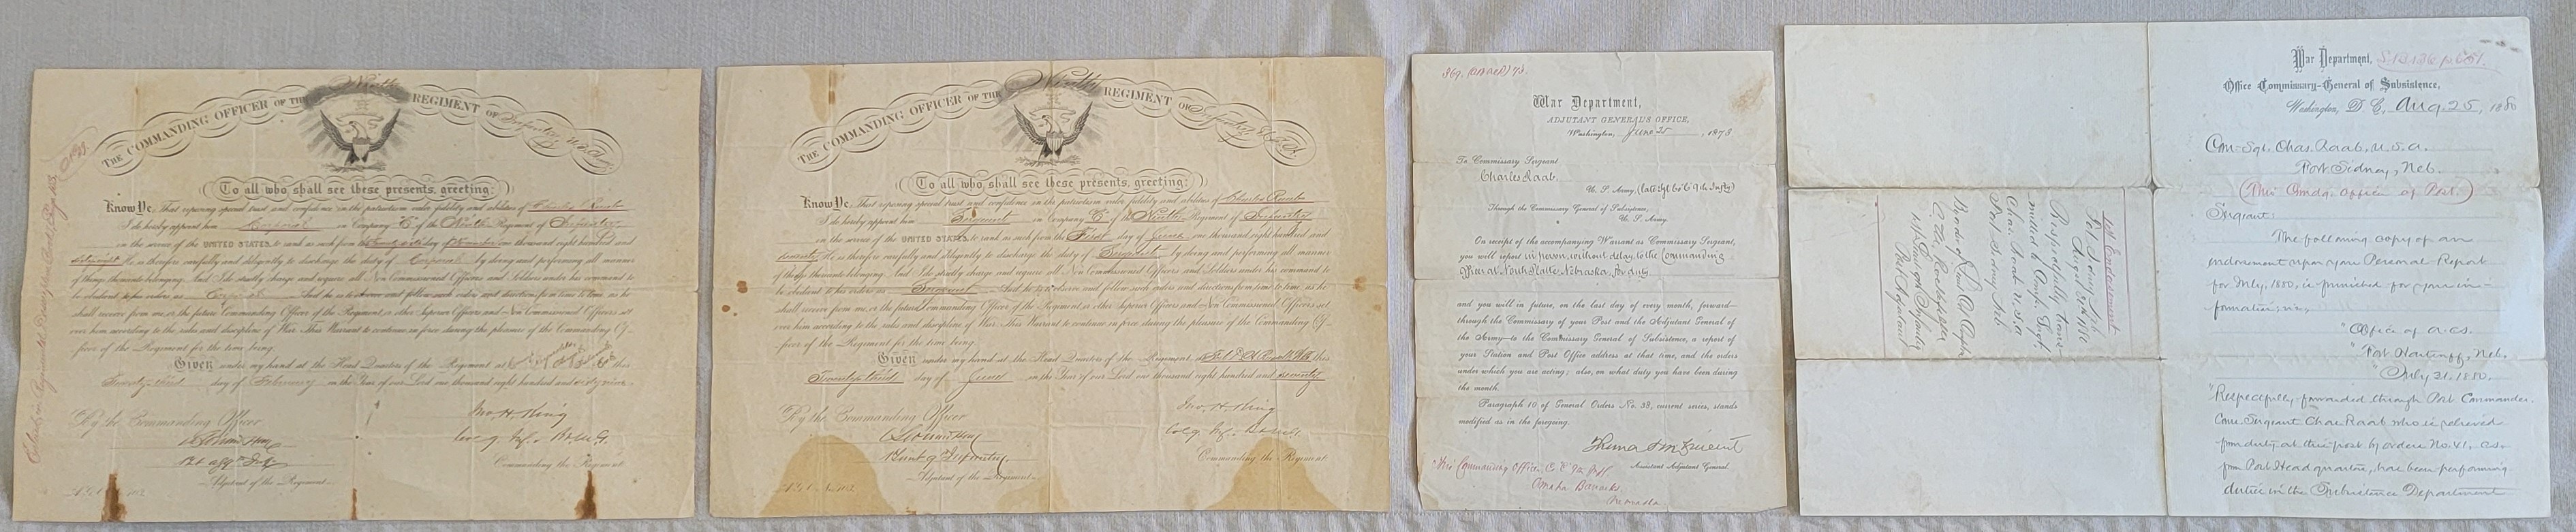 THE COMMANDING OFFICER OF THE Ninth REGIMENT OF Infantry
To all who shall see these presents, greeting:
Know Ye, That reposing special trust and confidence in the patriotism valor fidelity and abilities of Charles
I do hereby appoint him Corporal in Company "E" of the Ninth Regiment of Infantry
in the service of the UNITED STATES to rank as such from the day of one thousand eight hundred and
He is therefore carefully and diligently to discharge the duty of Corporal by doing and performing all manner
of things thereunto belonging. And I do strictly charge and require all Non Commissioned Officers and Soldiers under his command to
be obedient to his orders as Corporal And he is to observe and follow such orders and directions from time to time, as he
shall receive from me, or the future Commanding Officer of the Regiment, or other Superior Officers and Non Commissioned Officers set
over him according to the rules and discipline of War. This Warrant to continue in force during the pleasure of the Commanding Of-
ficer of the Regiment for the time being.
Given under my hand at the Head Quarters of the Regiment at this
Twenty-third day of February in the Year of our Lord one thousand eight hundred and sixty nine
By the Commanding Officer
Jno. H. King
Adjutant of the Regiment
Commanding the Regiment
THE COMMANDING OFFICER OF THE Ninth REGIMENT OF Infantry
To all who shall see these presents, greeting:
Know Ye, That reposing special trust and confidence in the patriotism valor fidelity and abilities of Charles
I do hereby appoint him Sergeant in Company "E" of the Ninth Regiment of Infantry
in the service of the UNITED STATES to rank as such from the First day of June one thousand eight hundred and
seventy He is therefore carefully and diligently to discharge the duty of Sergeant by doing and performing all manner
of things thereunto belonging. And I do strictly charge and require all Non Commissioned Officers and Soldiers under his command to
be obedient to his orders as Sergeant And he is to observe and follow such orders and directions from time to time, as he
shall receive from me, or the future Commanding Officer of the Regiment, or other Superior Officers and Non Commissioned Officers set
over him according to the rules and discipline of War. This Warrant to continue in force during the pleasure of the Commanding Of-
ficer of the Regiment for the time being.
Given under my hand at the Head Quarters of the Regiment this
Twenty third day of June in the Year of our Lord one thousand eight hundred and seventy
By the Commanding Officer
Jno. H. King
Adjutant of the Regiment
Commanding the Regiment
War Department,
ADJUTANT GENERAL'S OFFICE,
Washington, June 25, 1873
To Commissary Sergeant
Charles Raab,
U. S. Army, (late Sgt Co "E" 9th Infty)
Through the Commissary General of Subsistence,
U. S. Army.
On receipt of the accompanying Warrant as Commissary Sergeant,
you will report in person, without delay, to the Commanding
Officer at North Platte, Nebraska, for duty.
and you will in future, on the last day of every month, forward—
through the Commissary of your Post and the Adjutant General of
the Army—to the Commissary General of Subsistence, a report of
your Station and Post Office address at that time, and the orders
under which you are acting; also, on what duty you have been during
the month.
Paragraph 10 of General Orders No. 38, current series, stands
modified as in the foregoing.
Assistant Adjutant General.
Thro' Commanding Officer, Co. "E" 9th Inf.
Omaha Barracks,
Nebraska.
1st Endorsement
Fort Sidney Neb
August 30th 1880
Respectfully trans-
mitted to Comsy. Sergt
Chas. Raab U.S.A
Fort Sidney Neb
Post Adjutant
War Department,
Office Commissary-General of Subsistence,
Washington, D. C., Aug 25, 1880
Com. Sgt. Chas. Raab, U.S.A.
Fort Sidney, Neb.
(Thro' Cmdg. Officer of Post.)
Sergeant:
The following copy of an
endorsement upon your Personal Report
for July, 1880, is furnished for your in-
formation: viz,
"Office of A.C.S.
"Fort Hartsuff, Neb.
"July 31, 1880.
"Respectfully forwarded through Post Commander.
Com. Sergeant Chas. Raab who is relieved
from duty at this post by orders No. 41, c.s.
from Post Headquarters, has been performing
duties in the Subsistence Department